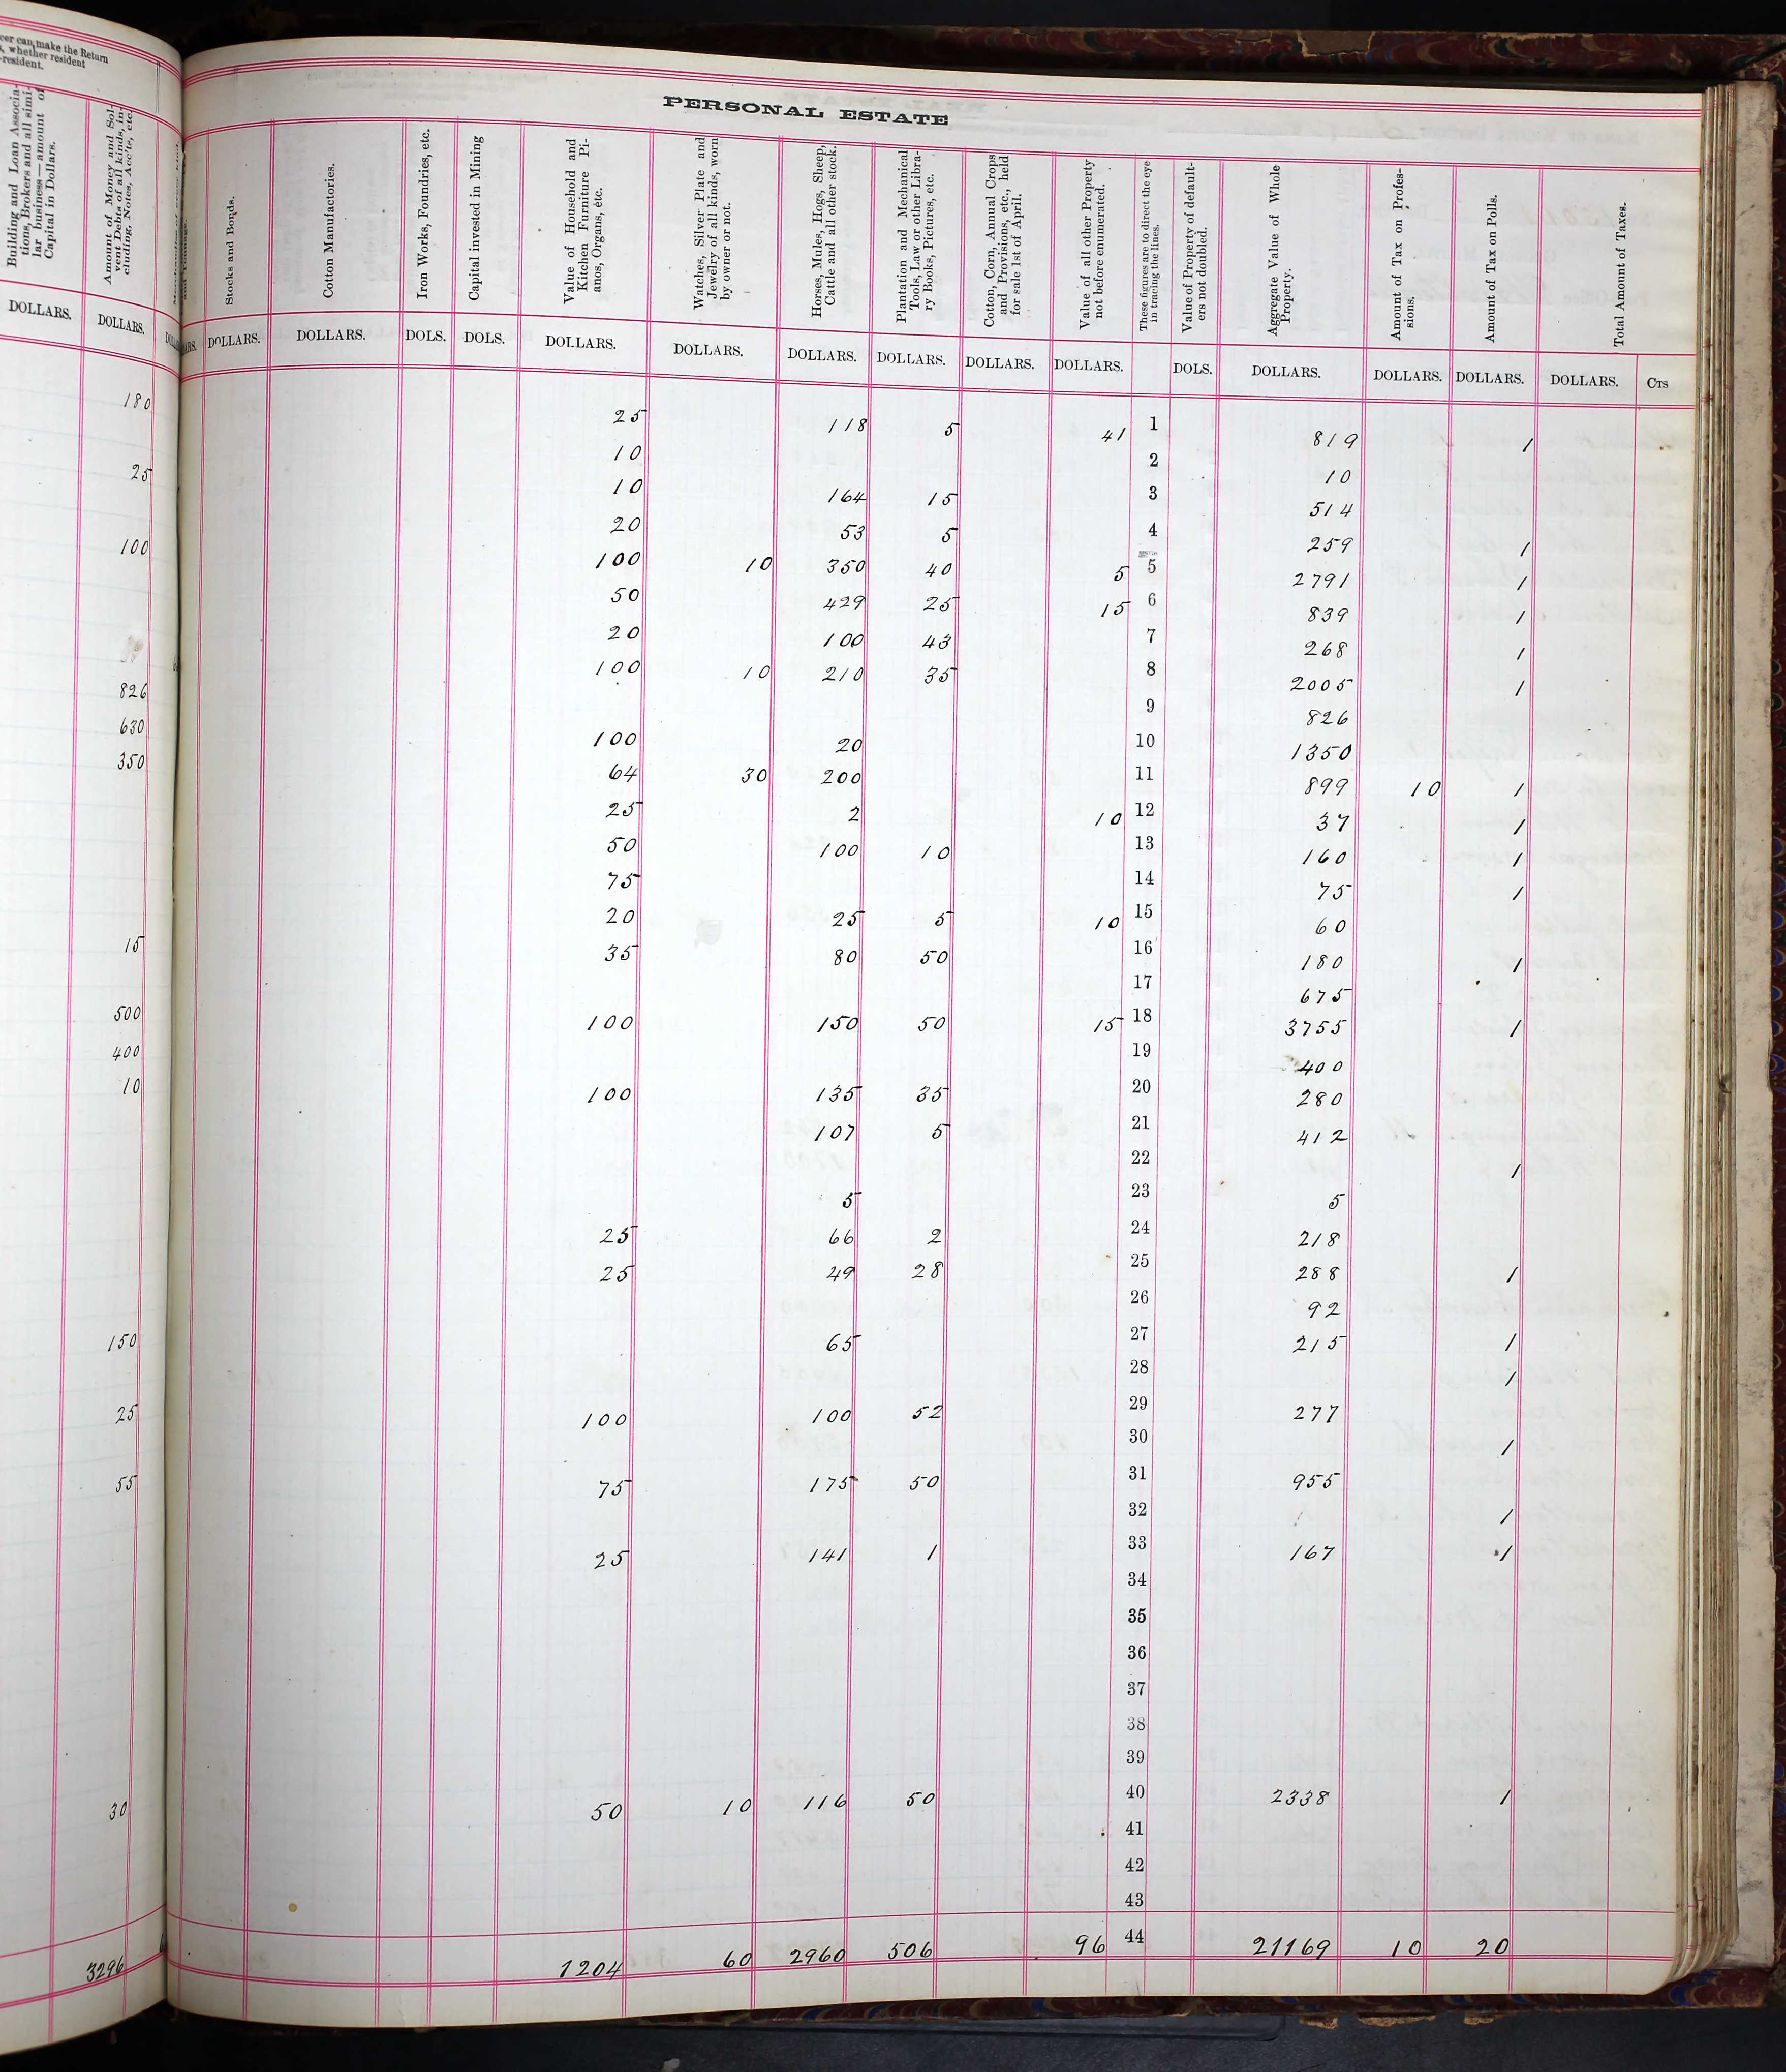 cer can make the Return
, whether resident
-resident.
Building and Loan Associa-
tions, Brokers and all simi-
lar business—amount of
Capital in Dollars.
Amount of Money and Sol-
vent Debts of all kinds, in-
cluding, Notes, Acc'ts, etc.
DOLLARS. DOLLARS.
180
25
100
826
630
350
15
500
400
10
150
25
55
30
3296
PERSONAL ESTATE
Stocks and Bonds.
Cotton Manufactories.
Iron Works, Foundries, etc.
Capital invested in Mining
Value of Household and
Kitchen Furniture Pi-
anos, Organs, etc.
Watches, Silver Plate and
Jewelry of all kinds, worn
by owner or not.
Horses, Mules, Hogs, Sheep,
Cattle and all other stock.
Plantation and Mechanical
Tools, Law or other Libra-
ry Books, Pictures, etc.
Cotton, Corn, Annual Crops
and Provisions, etc., held
for sale 1st of April.
Value of all other Property
not before enumerated.
These figures are to direct the eye
in tracing the lines.
Value of Property of default-
ers not doubled.
Aggregate Value of Whole
Property.
Amount of Tax on Profes-
sions.
Amount of Tax on Polls.
Total Amount of Taxes.
DOLLARS. DOLLARS. DOLS. DOLS. DOLLARS. DOLLARS. DOLLARS. DOLLARS. DOLLARS. DOLLARS. DOLS. DOLLARS. DOLLARS. DOLLARS. DOLLARS. CTS
25 118 5 41 1 819 1
10 2 10
10 164 15 3 514
20 53 5 4 259 1
100 10 350 40 5 5 2791 1
50 429 25 15 6 839 1
20 100 43 7 268 1
100 10 210 35 8 2005 1
9 826
100 20 10 1350
64 30 200 11 899 10 1
25 2 10 12 37 1
50 100 10 13 160 1
75 14 75 1
20 25 5 10 15 60
35 80 50 16 180 1
17 675
100 150 50 15 18 3755 1
19 400
100 135 35 20 280
107 5 21 412
22 1
5 23 5
25 66 2 24 218
25 49 28 25 288 1
26 92
65 27 215 1
28 1
100 100 52 29 277
30 1
75 175 50 31 955
32 1
25 141 1 33 167 1
34
35
36
37
38
39
50 10 116 50 40 2338 1
41
42
43
1204 60 2960 506 96 44 21169 10 20